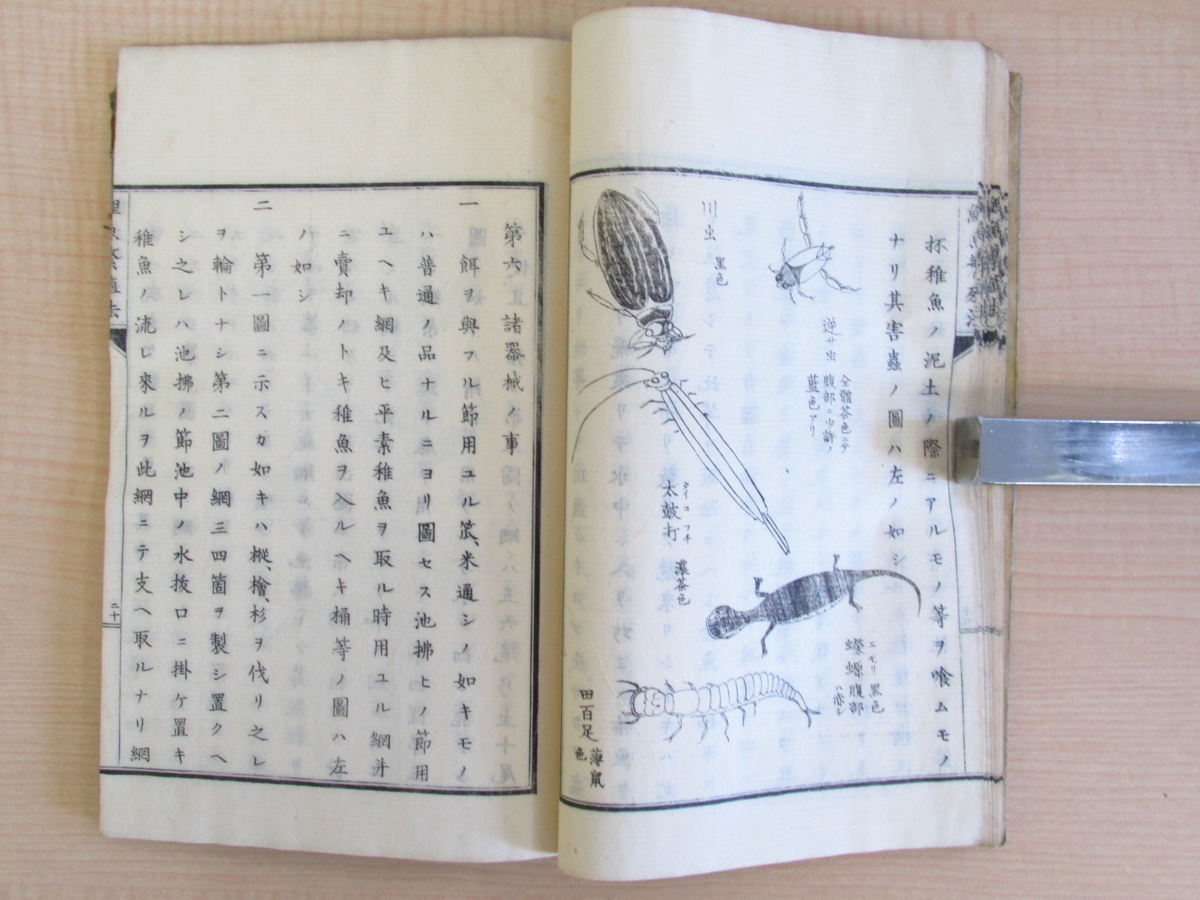 杯稚魚ノ泥土ノ際ニアルモノ等ヲ喰ムモノ
ナリ其害蟲ノ圖ハ左ノ如シ
逆サ虫
全體茶色ニテ
腹部ニ少許ノ
藍色アリ
川虫 黒色
太鼓打
タイコウチ
濃茶色
エモリ
蠑螈
黒色
腹部
ハ赤シ
田百足
薄鼠
色
第六 諸器械ノ事
一 餌ヲ與フル節用ユル笊、米通シノ如キモノ
ハ普通ノ品ナルニヨリ圖セス池拂ヒノ節用
ユヘキ網及ヒ平素稚魚ヲ取ル時用ユル網并
ニ賣却ノトキ稚魚ヲ入ルヘキ桶等ノ圖ハ左
ノ如シ
二 第一圖ニ示スカ如キハ樅、檜、杉ヲ伐リ之レ
ヲ輪トナシ第二圖ノ網三四箇ヲ製シ置クヘ
シ之レハ池拂ノ節池中ノ水抜口ニ掛ケ置キ
稚魚ノ流レ來ルヲ此網ニテ支ヘ取ルナリ網
二十